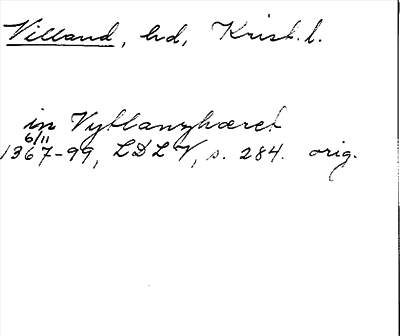 Villand, hd, Krist. l.
in Vytlanzhæret
6/11
1367-99, LDLV, s. 284. orig.